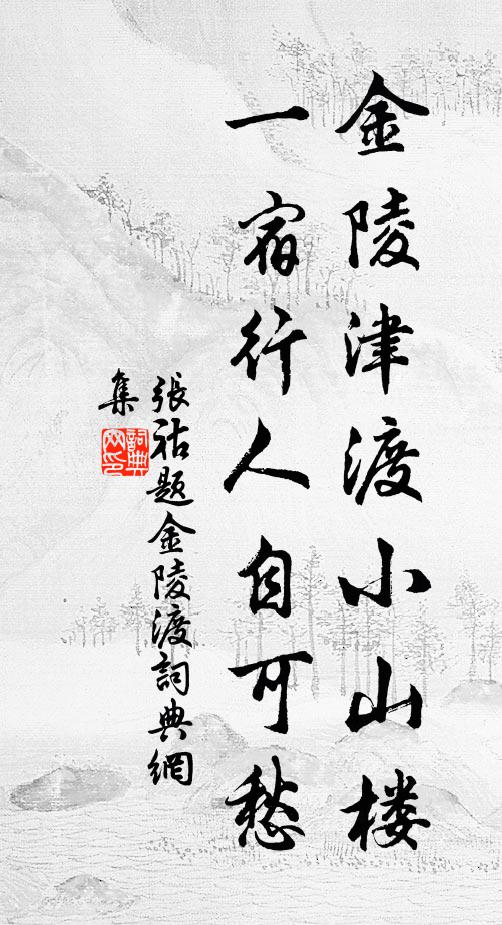 金陵津渡小山楼
一宿行人自可愁
張祜题金陵渡詞典網
集
詞典網印